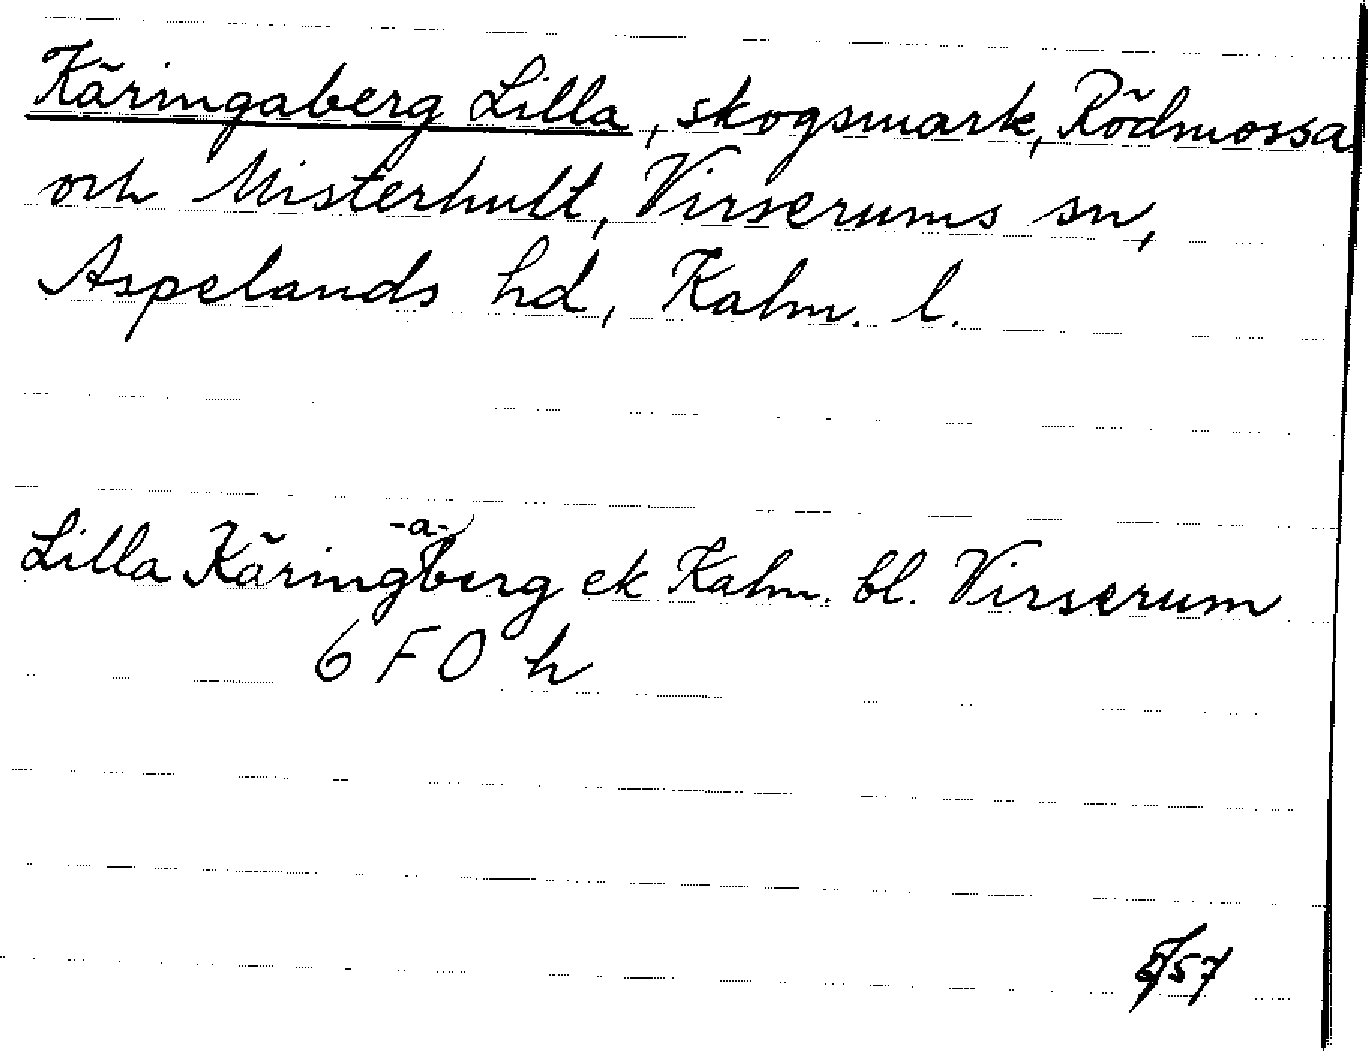 Käringaberg Lilla, skogsmark, Rödmossa
och Misterhult, Virserums sn,
Aspelands hd, Kalm. l.
-a-
Lilla Käringberg ek Kalm. bl. Virserum
6 F O h